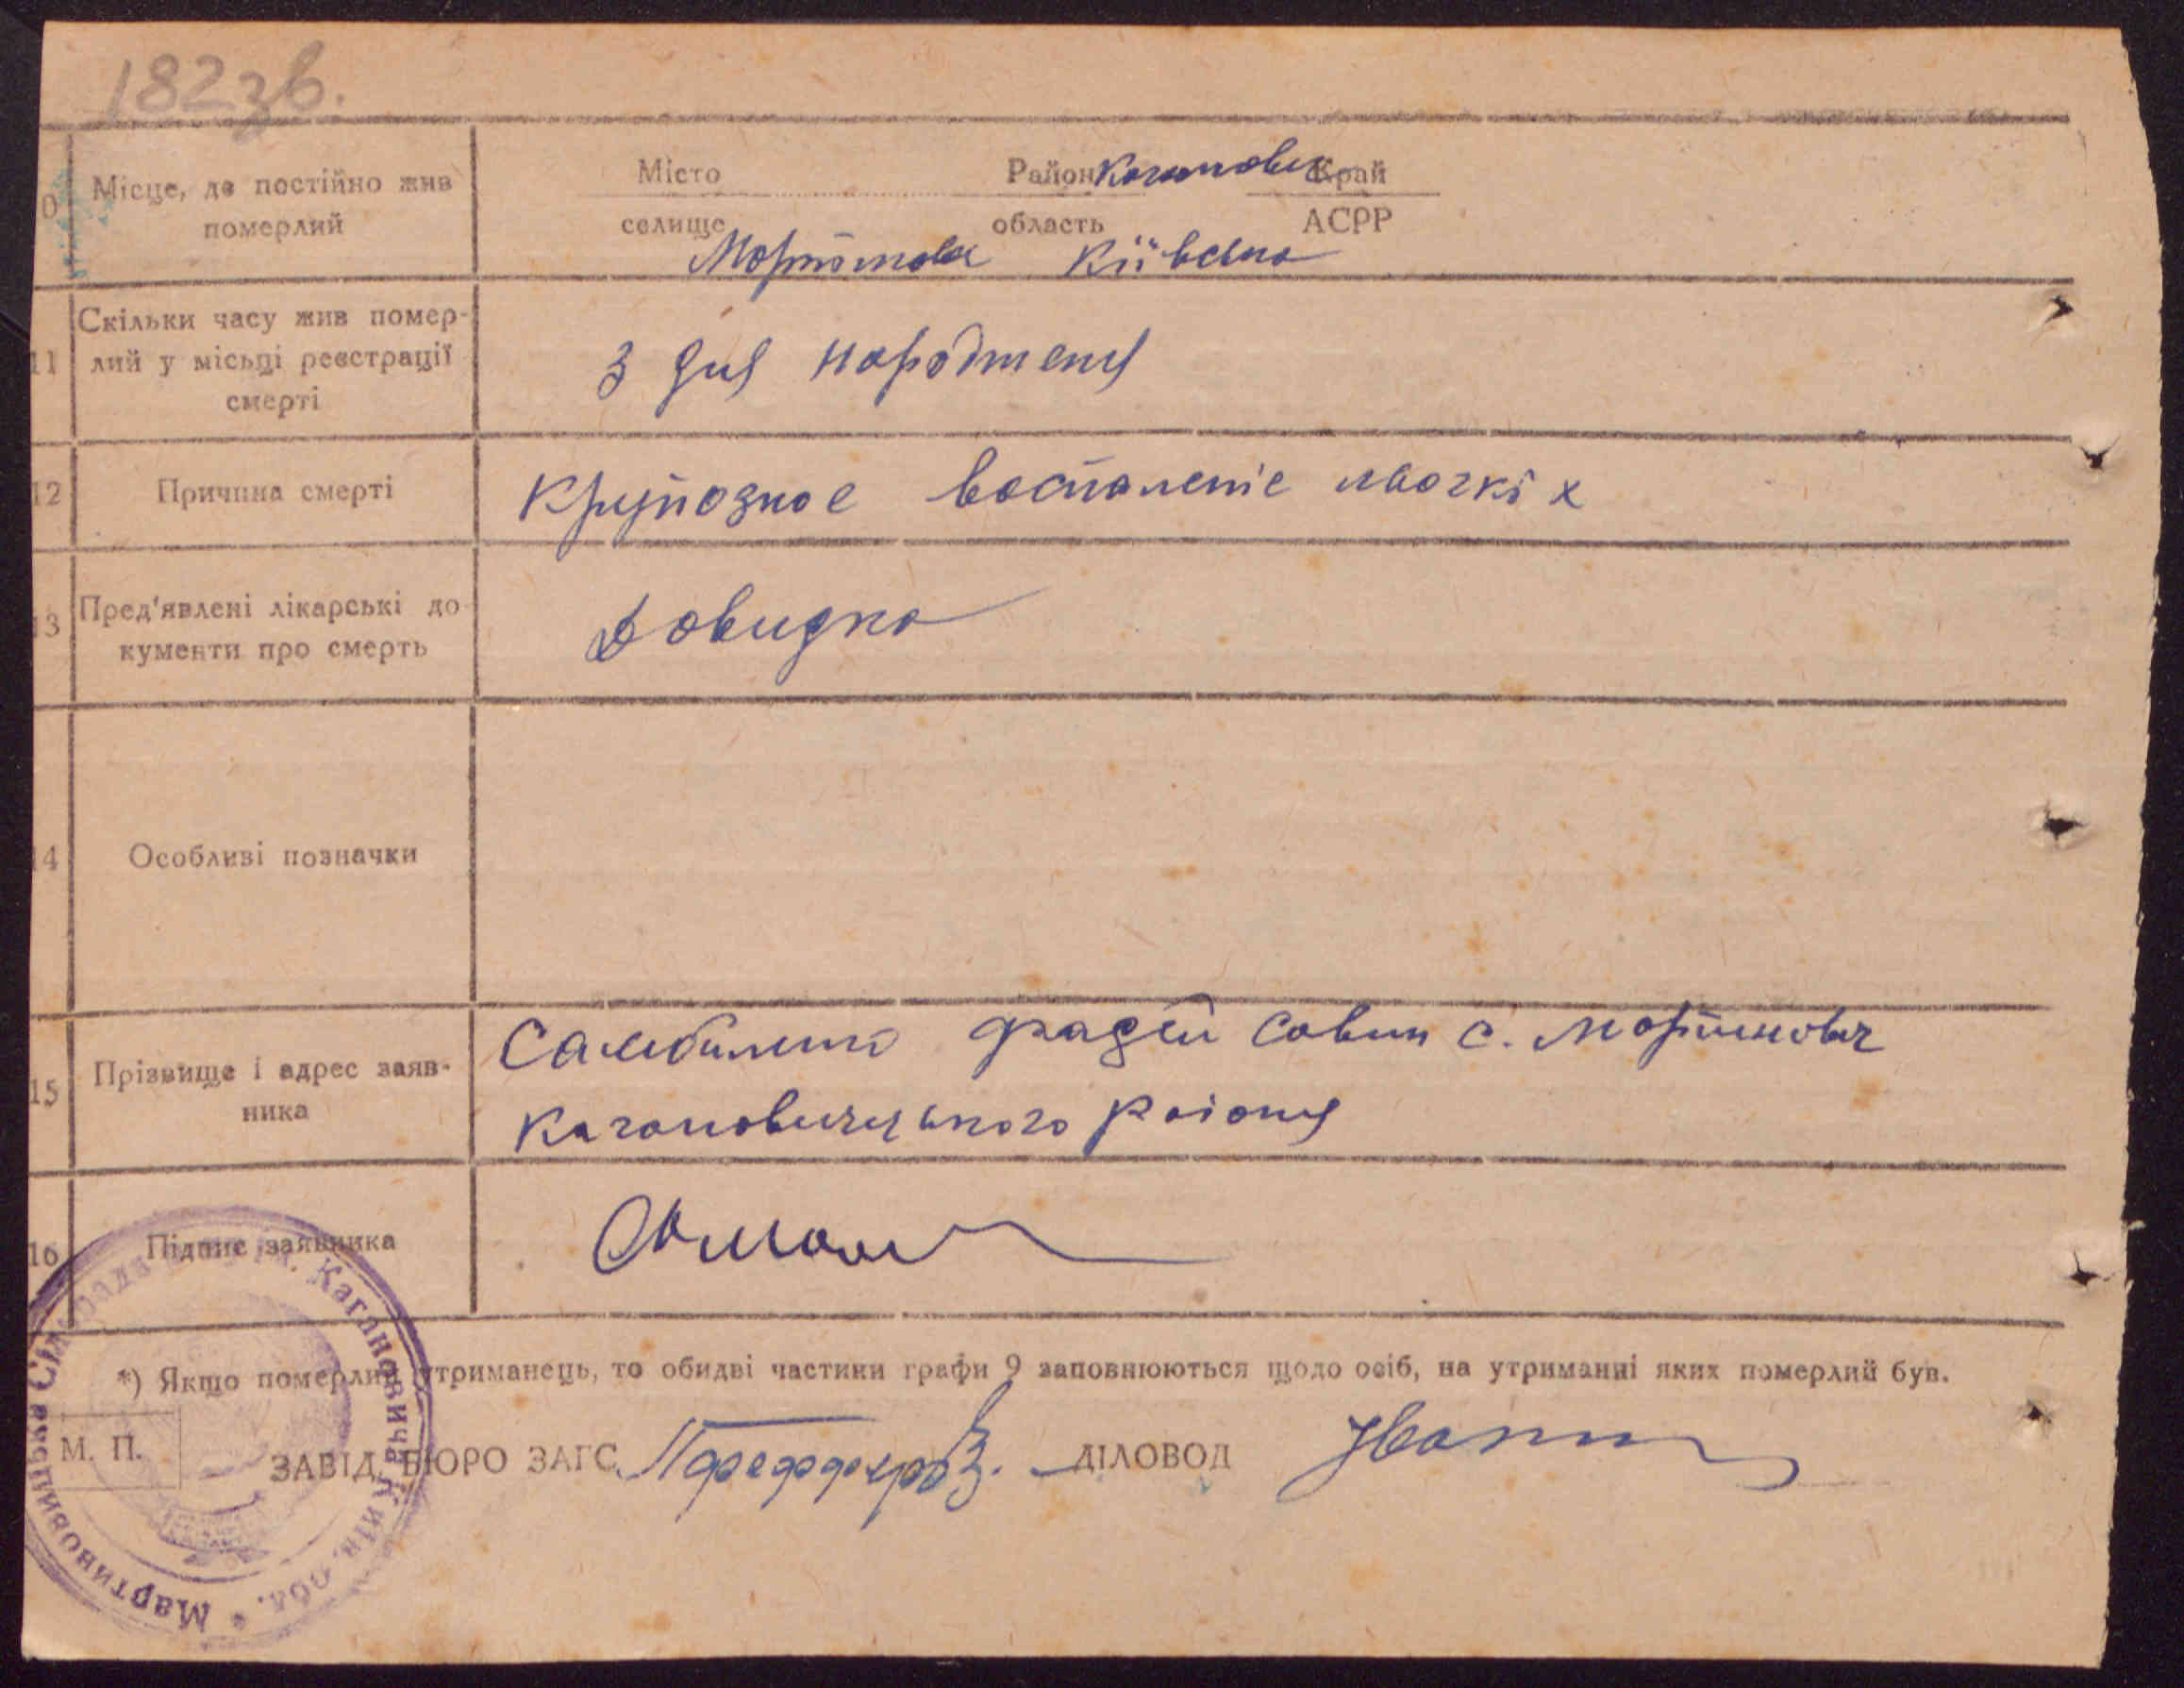 182зв.
10 Місце, де постійно жив
померлий
Місто Район Каганович Край
селище область АСРР
Мартинович Київська
11 Скільки часу жив помер-
лий у місьці реєстрації
смерті
З дня народженя
12 Причина смерті
Крупозное воспаленіе льогкіх
13 Пред'явлені лікарські до
кументи про смерть
Довидка
14 Особливі позначки
15 Прізвище і адрес заяв-
ника
Фадей Савич с. Мартинович
Кагановичуського раіоня
16 Підпис заявника
*) Якщо померлий утриманець, то обидві частини графи 9 заповнюються щодо осіб, на утриманні яких померлий був.
М. П.
ЗАВІД. БЮРО ЗАГС ДІЛОВОД
Мартиновицька Сільрада Кагановича Київ. обл.